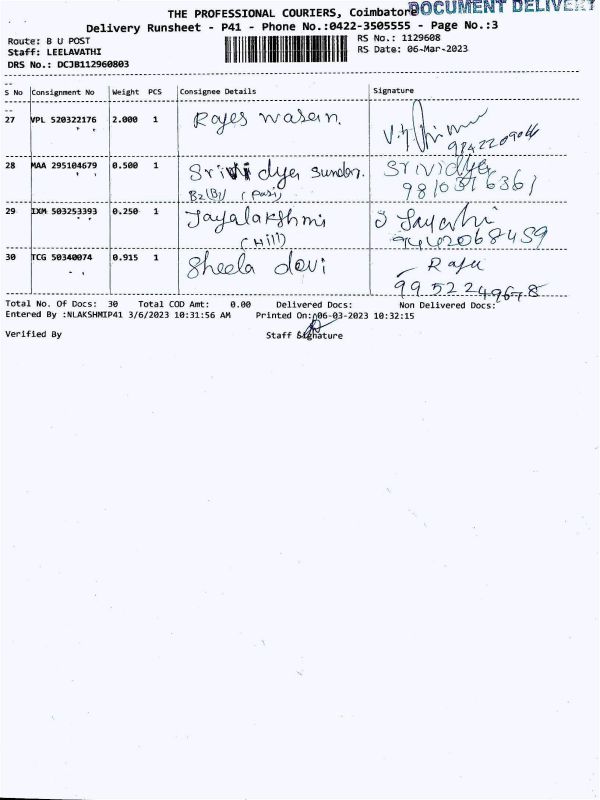 THE PROFESSIONAL COURIERS, Coimbatore
DOCUMENT DELIVERY
Delivery Runsheet - P41 - Phone No.:0422-3505555 - Page No.:3
Route: B U POST
RS No.: 1129608
Staff: LEELAVATHI
RS Date: 06-Mar-2023
DRS No.: DCJB112960803
S No Consignment No Weight PCS Consignee Details Signature
27 VPL 520322176 2.000 1 Rajes wasen.
9842209044
28 MAA 295104679 0.500 1 Srividya sundar. Srividya
B2(B) (Pasi) 9810316361
29 IXM 503253393 0.250 1 Jayalakshmi J Jayashi
(Hill) 9442068459
30 TCG 50340074 0.915 1 Sheela devi Raju
9952249678
Total No. Of Docs: 30 Total COD Amt: 0.00 Delivered Docs: Non Delivered Docs:
Entered By :NLAKSHMIP41 3/6/2023 10:31:56 AM Printed On: 06-03-2023 10:32:15
Verified By Staff Signature